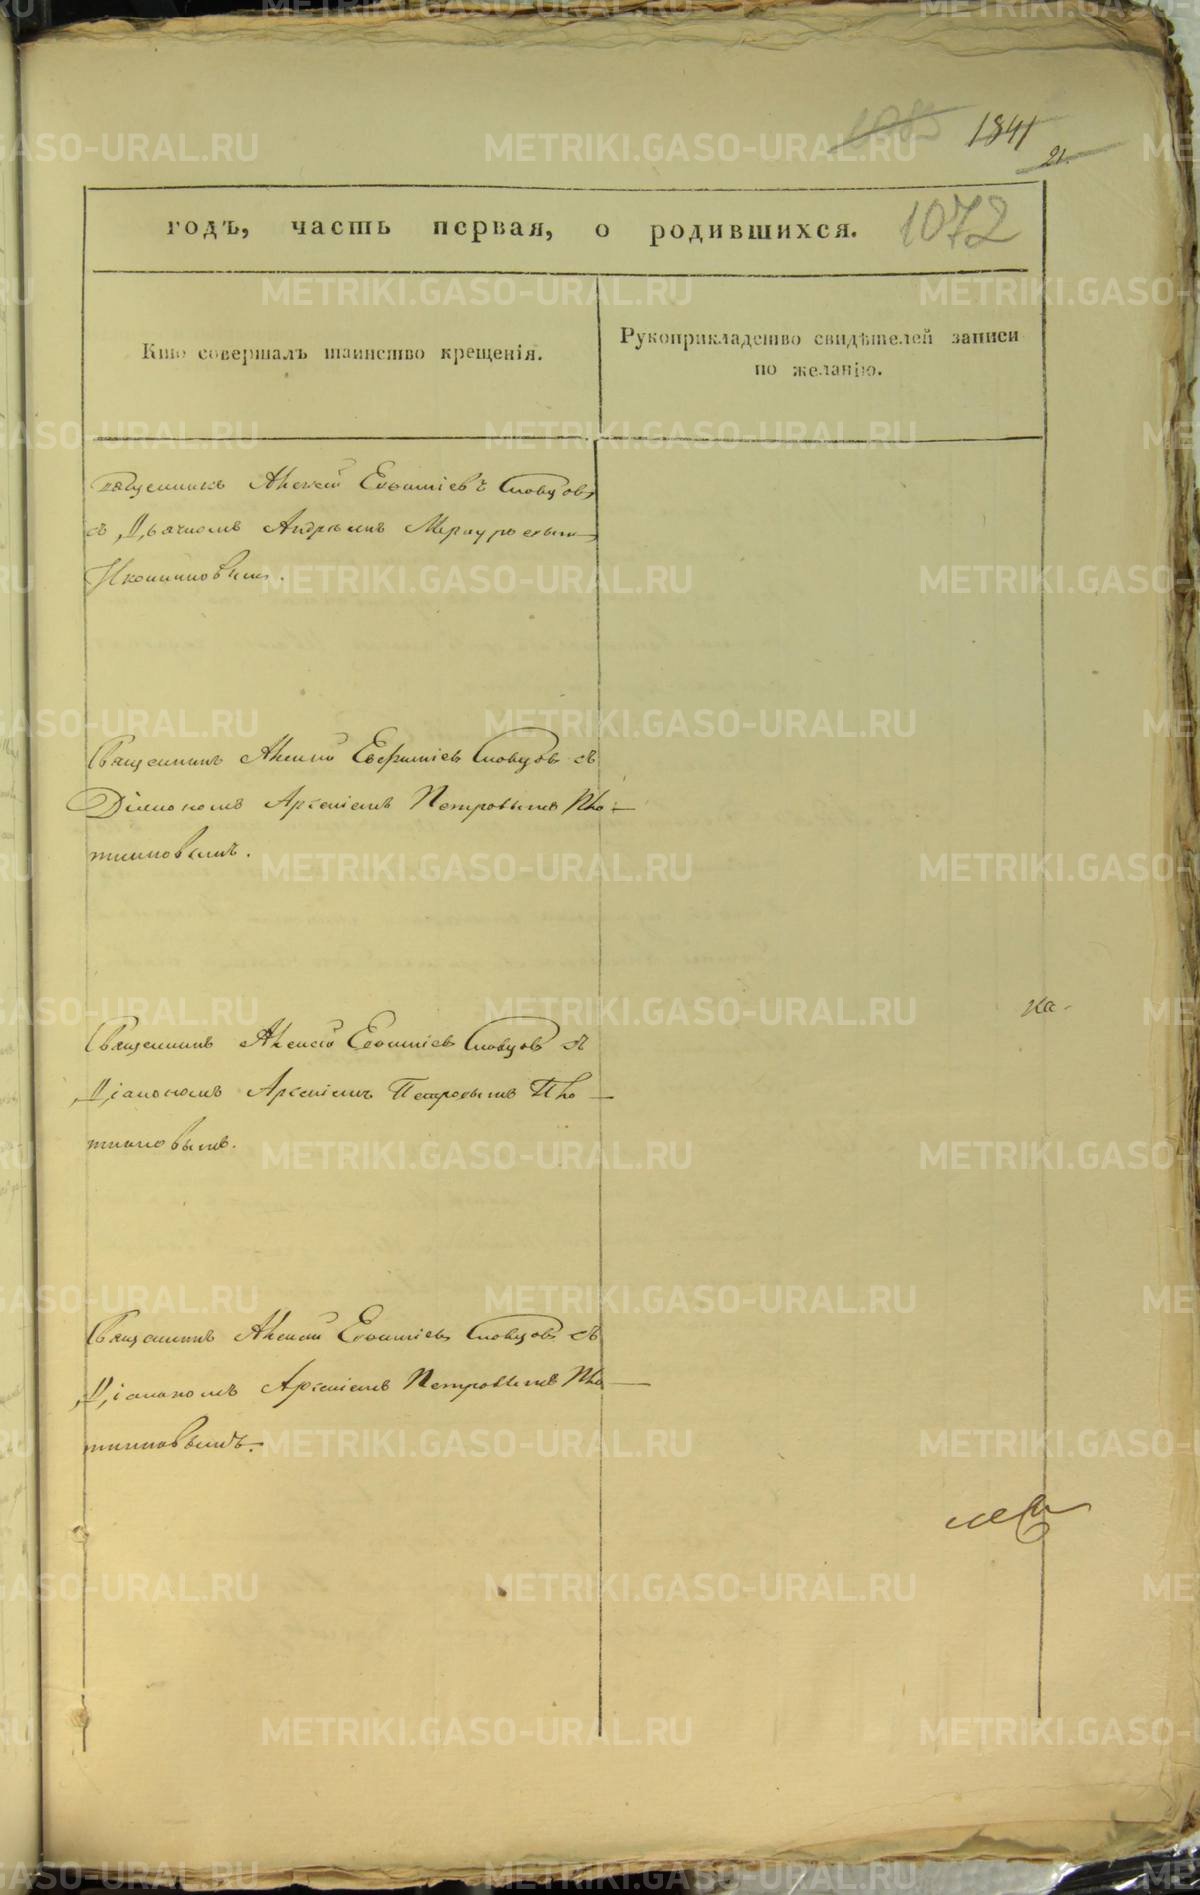 1841
21.
годъ, часть первая, о родившихся. 1072
Кто совершалъ таинство крещенія.
Рукоприкладство свидѣтелей записи
по желанію.
Священникъ Алексій Евѳиміевъ Словцовъ
съ Дьячкомъ Андреемъ Меркурьевымъ
Иконниковымъ.
Священникъ Алексій Евфиміевъ Словцовъ съ
Діакономъ Арсеніемъ Петровымъ Пло-
тниковымъ.
ка-
Священникъ Алексій Евѳиміевъ Словцовъ съ
Діакономъ Арсеніемъ Петровымъ Пло-
тниковымъ.
Священникъ Алексій Евѳиміевъ Словцовъ съ
Діакономъ Арсеніемъ Петровымъ Пло-
тниковымъ.
METRIKI.GASO-URAL.RU